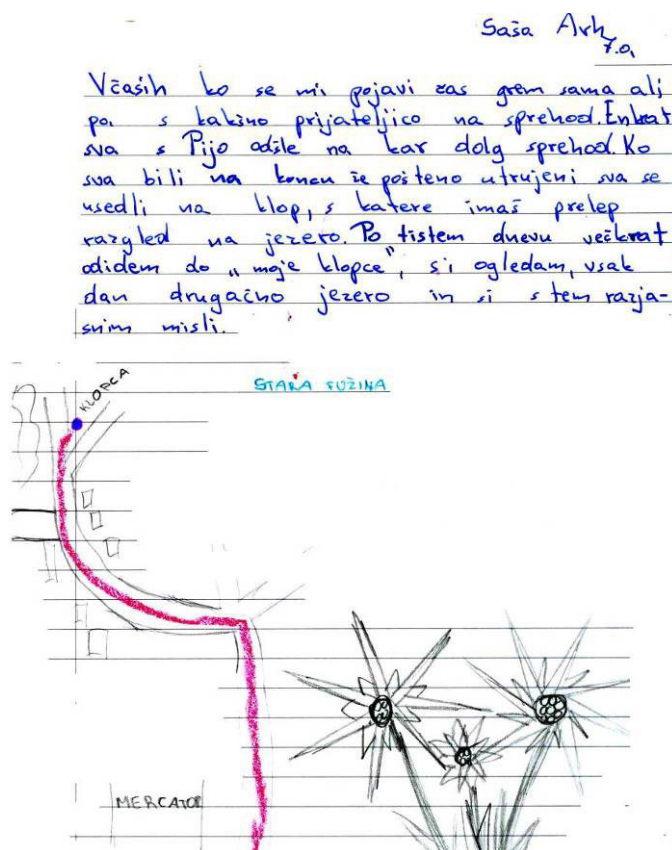 Saša Arh
7.a
Včasih ko se mi pojavi čas grem sama ali
pa s kakšno prijateljico na sprehod. Enkrat
sva s Pijo odšle na kar dolg sprehod. Ko
sva bili na koncu že pošteno utrujeni sva se
usedli na klop, s katere imaš prelep
razgled na jezero. Po tistem dnevu večkrat
odidem do "moje klopce", si ogledam, vsak
dan drugačno jezero in si s tem razja-
snim misli.
STARA FUŽINA
KLOPCA
MERCATOR